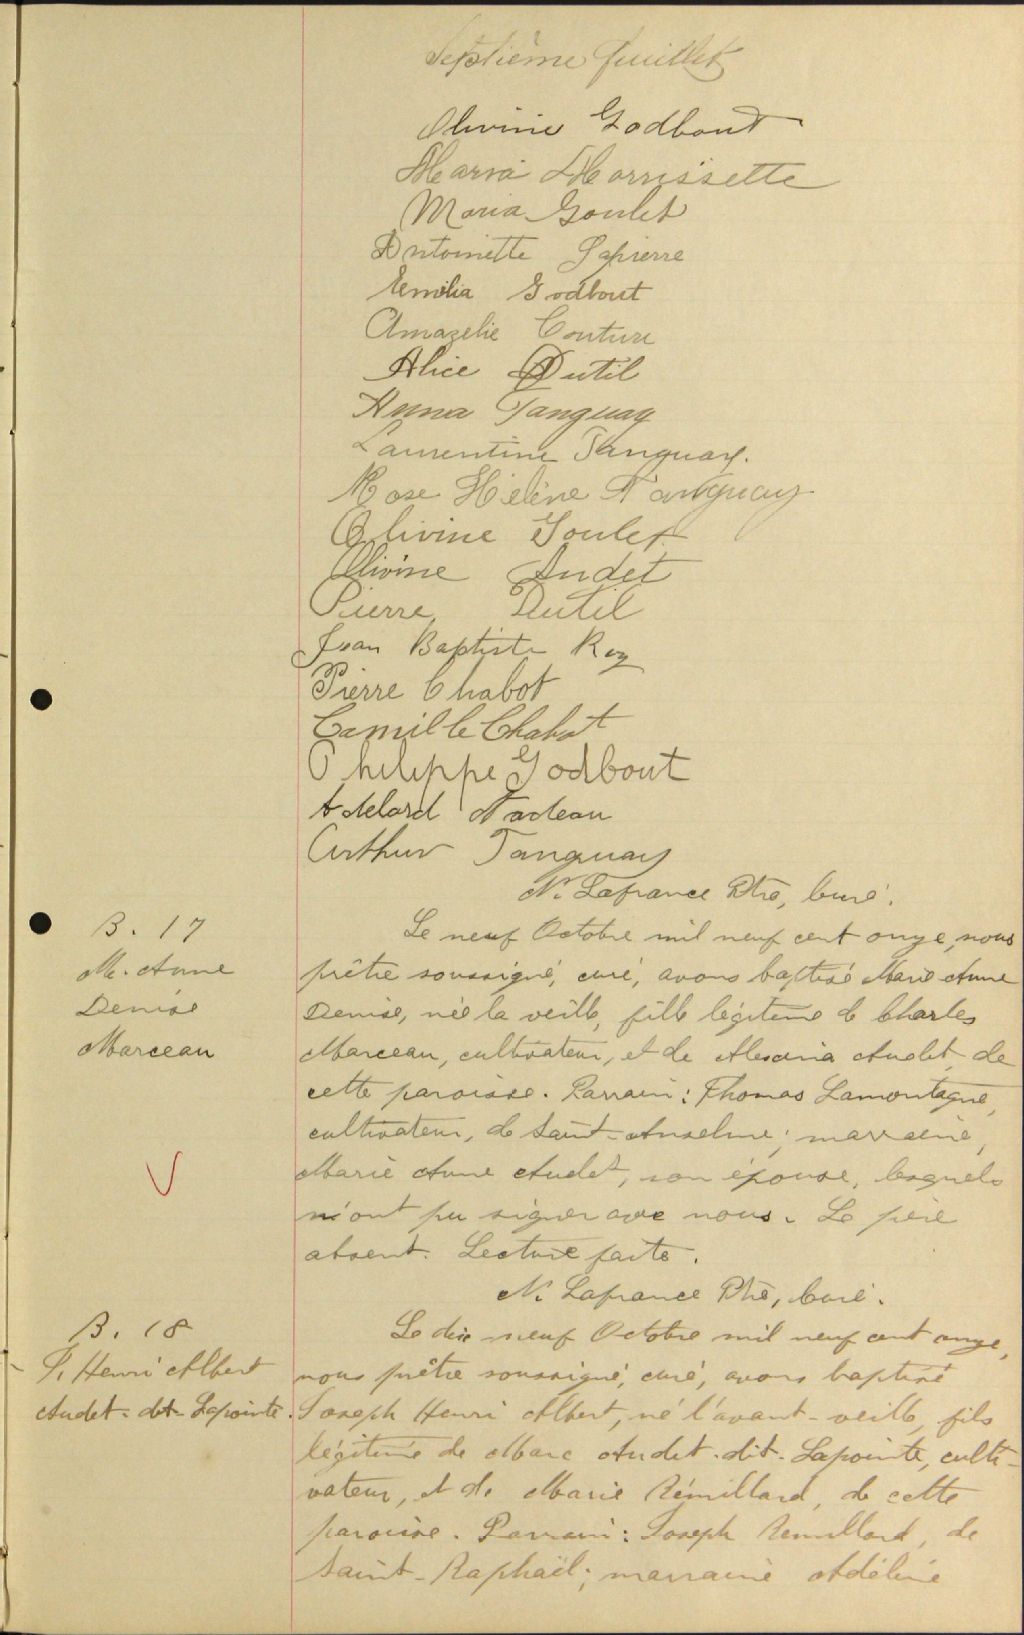 Septième feuillet
Olivine Godbout
Maria Morrissette
Maria Goulet
Antoinette Lapierre
Emilia Godbout
Amazelie Couture
Alice Dutil
Anna Tanguay
Laurentine Tanguay.
Rose Hélène Tanguay
Olivine Goulet
Olivine Audet
Pierre Dutil
Jean Baptiste Roy
Pierre Chabot
Camille Chabot
Philippe Godbout
Adelard Nadeau
Arthur Tanguay
N. Lafrance Ptre, Curé.
B. 17
M. Anne
Denise
Marceau
Le neuf Octobre mil neuf cent onze, nous
prêtre soussigné, curé, avons baptisé Marie Anne
Denise, née la veille, fille légitime de Charles
Marceau, cultivateur, et de Alexina Audet de
cette paroisse. Parrain: Thomas Lamontagne,
cultivateur, de Saint-Anselme; marraine,
Marie Anne Audet, son épouse, lesquels
n'ont pu signer avec nous. Le père
absent. Lecture faite.
N. Lafrance Ptre, Curé.
B. 18
J. Henri Albert
Audet-dit-Lapointe.
Le dix-neuf Octobre mil neuf cent onze,
nous prêtre soussigné, curé, avons baptisé
Joseph Henri Albert, né l'avant-veille, fils
légitime de Marc Audet-dit-Lapointe, culti-
vateur, et de Marie Rémillard, de cette
paroisse. Parrain: Joseph Remillard, de
Saint-Raphaël; marraine Adéline